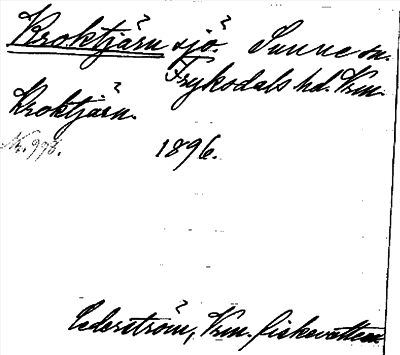 Kroktjärn sjö. Sunne sn.
Fryksdals hd. Vrm.
Kroktjärn.
1896.
Cederström, Vrm. fiskevatten